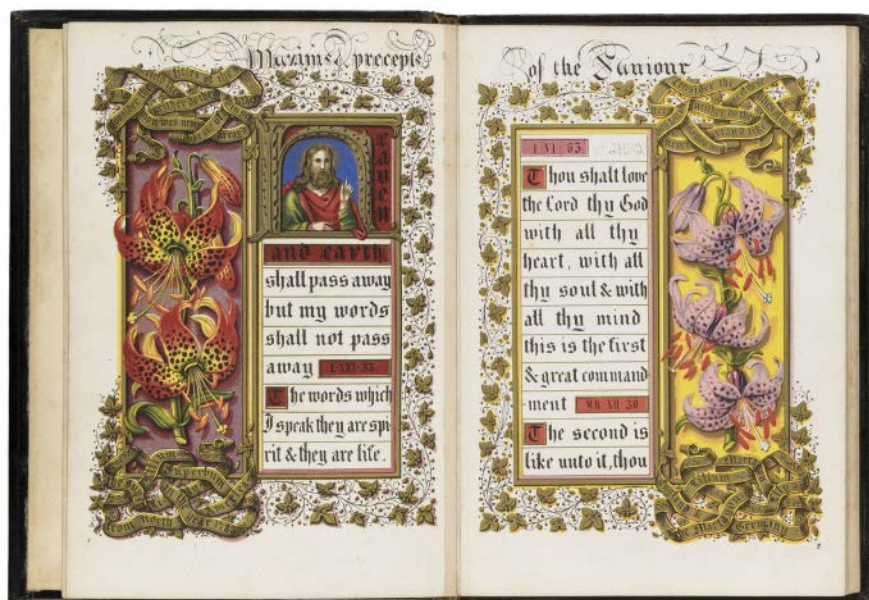 Maxims & precepts
Heaven
and earth
shall pass away
but my words
shall not pass
away L·XXI·33.
The words which
I speak they are spi-
rit & they are life.
Superbum
from North
of the Saviour
Consider the
I·VI·63.
Thou shalt love
the Lord thy God
with all thy
heart, with all
thy soul & with
all thy mind
this is the first
& great command
ment MR·XII·30
The second is
like unto it, thou
Lilium
Germany